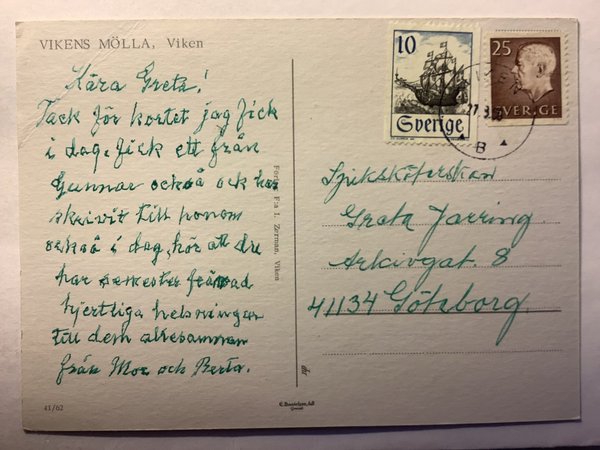 VIKENS MÖLLA, Viken
Kära Greta!
Tack för kortet jag fick
i dag. fick ett från
Gunnar också och har
skrivit till honom
också i dag, hör att du
har semester
hjertliga helsningar
till dem allesamman
från Mor och Berta.
41/62
Förlag F:a I. Zerman, Viken
10
Sverige
25
SVERIGE
27.
B
Sjuksköterskan
Greta Jarring
Arkivgat. 8
41134 Göteborg